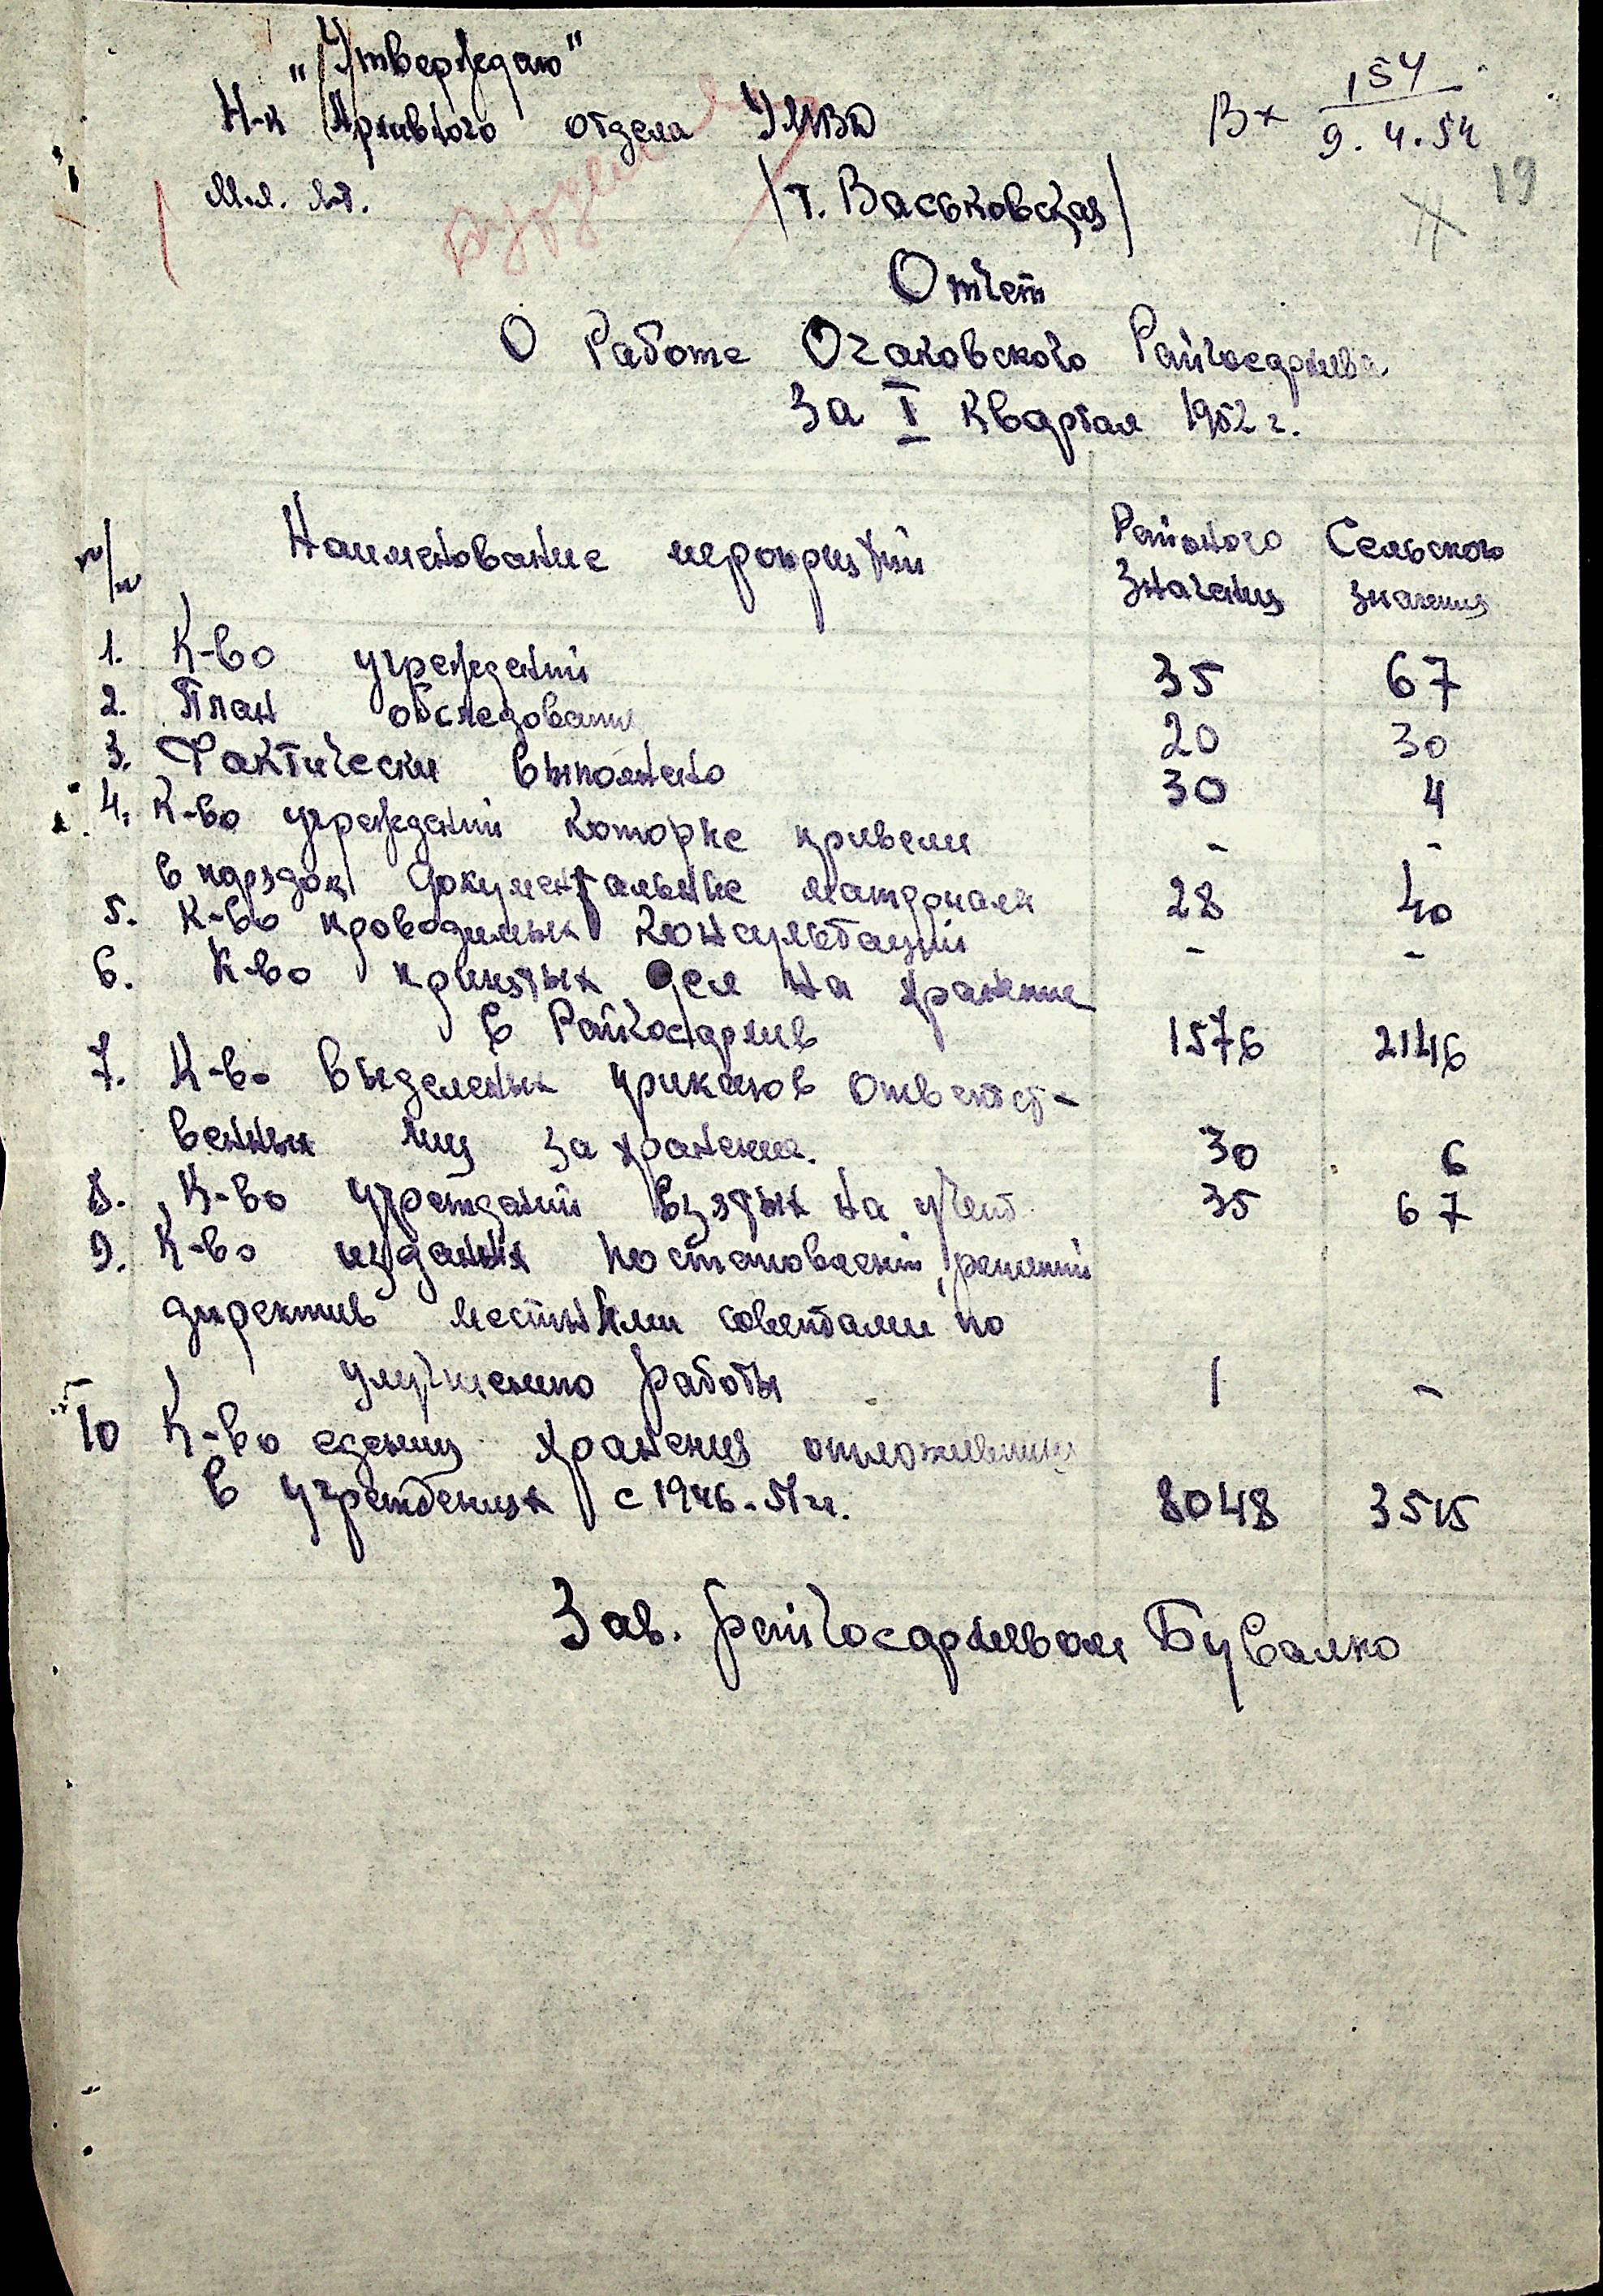 "Утверждаю"
Н-к Архивного отдела УМВД
Мл. л-т. /т. Васьковская/
Вх 154
9.4.52
19
Отчет
О Работе Очаковского Райгосархива
За I квартал 1952 г.
п/п Наименование мероприятий Районого Значения Сельского значения
1. К-во учреждений 35 67
2. План обследования 20 30
3. Фактически выполнено 30 4
4. К-во учреждений которые привели - -
в порядок документальные материалы 28 40
5. К-во проводимых консультаций - -
6. К-во принятых дел на хранение
в Райгосархив 1576 2146
7. К-во выделеных приказов ответст-
венных лиц за хранение. 30 6
8. К-во учреждений взятых на учет 35 67
9. К-во изданых постановлений, решений
директив местными советами по
улучшению работы 1 -
10 К-во едениц хранения отложившихся
в учреждениях с 1946-51 гг. 8048 3515
Зав. райгосархивом Бувалко